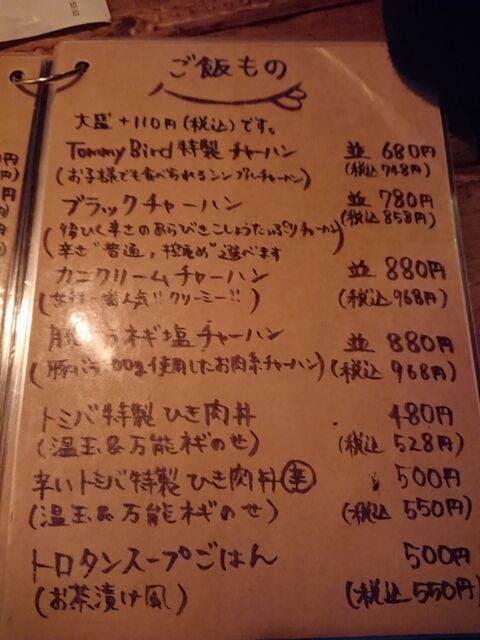 ご飯もの
大盛+110円(税込)です。
Tommy Bird 特製 チャーハン 並 680円
(お子様でも食べられるシンプルチャーハン) (税込748円)
ブラックチャーハン 並 780円
(後ひく辛さのあらびきこしょうたっぷりチャーハン) (税込858円)
辛さ"普通, 控え め"選べます
カニクリームチャーハン 並 880円
(女性一番人気!! クリーミー!!) (税込968円)
豚バラネギ塩チャーハン 並 880円
(豚バラ 00g使用したお肉系チャーハン) (税込968円)
トミバ特製 ひき肉丼 480円
(温玉&万能ネギのせ) (税込528円)
辛いトミバ特製 ひき肉丼 辛 500円
(温玉&万能ネギのせ) (税込550円)
トロタンスープごはん 500円
(お茶漬け風) (税込550円)